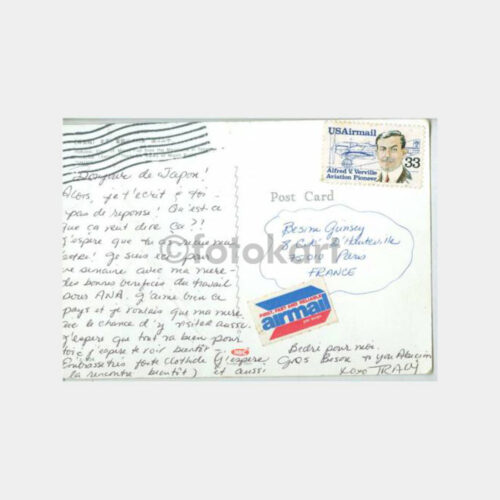 USAirmail
33
Alfred V. Verville
Aviation Pioneer
Post Card
Bonjour de Japon!
Alors, je t'écrit à toi
pas de réponse! Qu'est-ce
que ça veut dire ça?!
J'espère que tu
Je suis ici pour
une semaine avec ma mère-
des bons bénéfices du travail
pour ANA. J'aime bien ce
pays et je voulais que ma mère
la chance d'y visiter aussi.
J'espère que tout va bien pour
toi & j'espère te voir bientôt-
Embrasse très forte Clothilde (j'espère
la rencontre bientôt) et aussi
Bedri pour moi.
Gros Bisous
xoxo TRACY
Besim Gunsey
8 Cité D'Hauteville
75010 Paris
FRANCE
FIRST, FAST AND RELIABLE
airmail
par avion
NBC
©fotokart